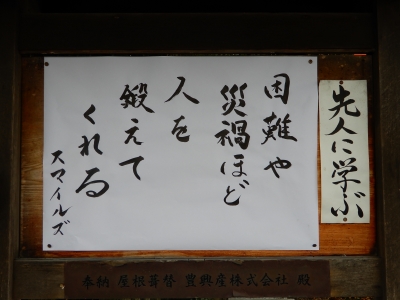 先人に学ぶ
困難や
災禍ほど
人を
鍛えて
くれる
スマイルズ
奉納 屋根葺替 豊興産株式会社 殿